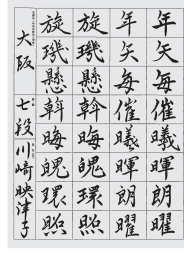 年矢毎催曦暉朗曜
年矢毎催曦暉朗曜
旋璣懸斡晦魄環照
旋璣懸斡晦魄環照
大阪 七段 川崎映津子